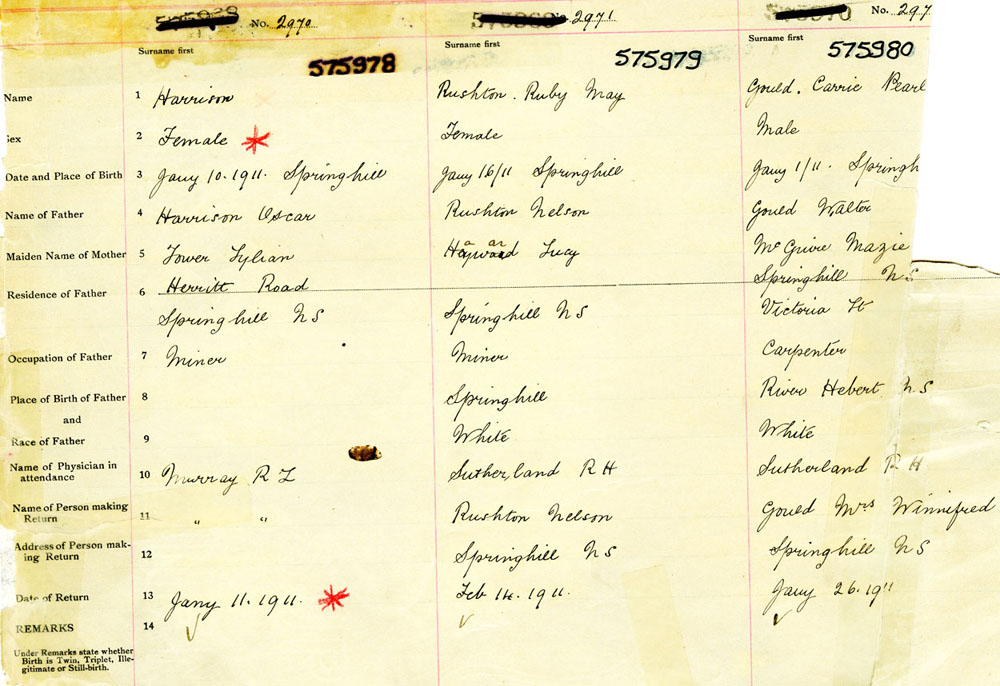 No. 2970 No. 2971 No. 297
Surname first Surname first Surname first
575978 575979 575980
Name 1 Harrison Rushton. Ruby May Gould. Carrie Pearl
Sex 2 Female Female Male
Date and Place of Birth 3 Jany 10. 1911. Springhill Jany 16/11 Springhill Jany 1/11. Springh
Name of Father 4 Harrison Oscar Rushton Nelson Gould Walter
Maiden Name of Mother 5 Tower Lylian Lucy McGuire Mazie
Residence of Father 6 Herritt Road Springhill NS
Springhill NS Springhill NS Victoria St
Occupation of Father 7 Miner Miner Carpenter
Place of Birth of Father 8 Springhill River Hebert NS
and
Race of Father 9 White White
Name of Physician in attendance 10 Murray R L Sutherland R H Sutherland R H
Name of Person making Return 11 " " Rushton Nelson Gould Mrs Winnifred
Address of Person making Return 12 Springhill NS Springhill NS
Date of Return 13 Jany 11. 1911. Feb 14. 1911. Jany 26. 1911
REMARKS 14
Under Remarks state whether
Birth is Twin, Triplet, Ille-
gitimate or Still-birth.